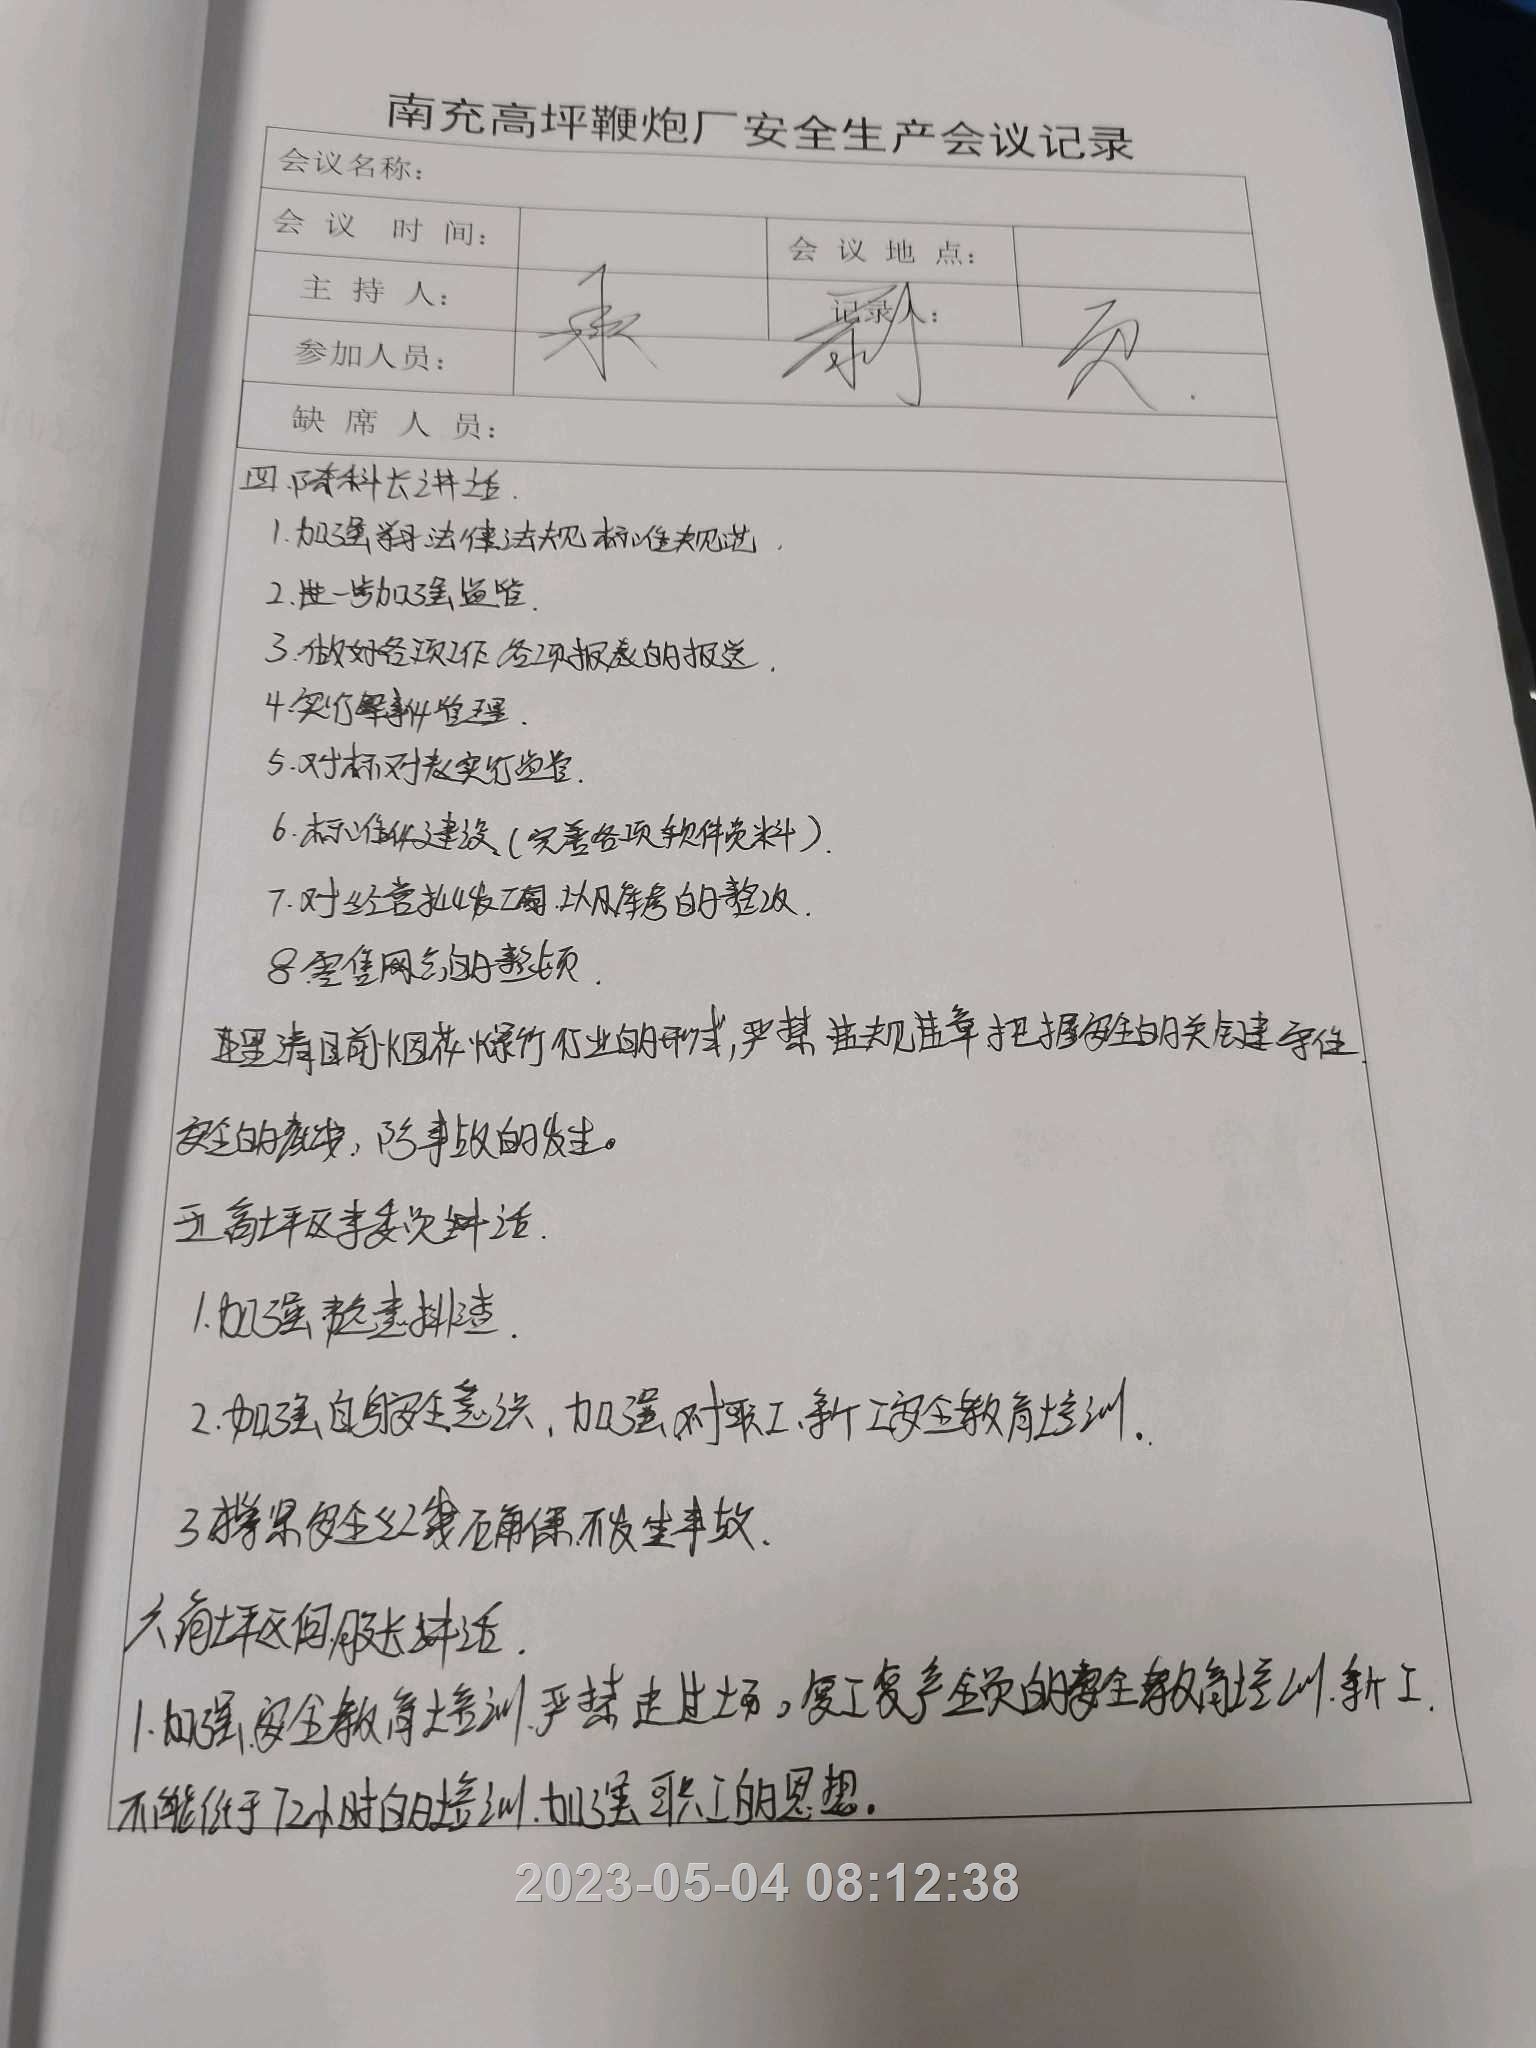 南充高坪鞭炮厂安全生产会议记录
会议名称:
会议时间: 会议地点:
主持人: 记录人:
承 前 页.
参加人员:
缺席人员:
四.陈科长讲话.
1.加强学习法律法规标准规范.
2.进一步加强监管.
3.做好各项工作各项报表的报送.
4.实行事件管理.
5.对标对表实行监管.
6.标准化建设.(完善各项软件资料).
7.对经营批发工以及库房的整改.
8.零售网点的整顿.
理清目前烟花爆竹行业的形式,严禁违规违章把握安全的关键守住
安全的底线,防事故的发生。
五高坪区李委员讲话.
1.加强隐患排查.
2.加强自身安全意识,加强对职工.新工安全教育培训.
3撑紧安全红线确保不发生事故.
六高坪区何股长讲话.
1.加强安全教育培训.严禁走过场。复工复产全员的安全教育培训.新工.
不能低于72小时的培训.加强职工的思想.
2023-05-04 08:12:38